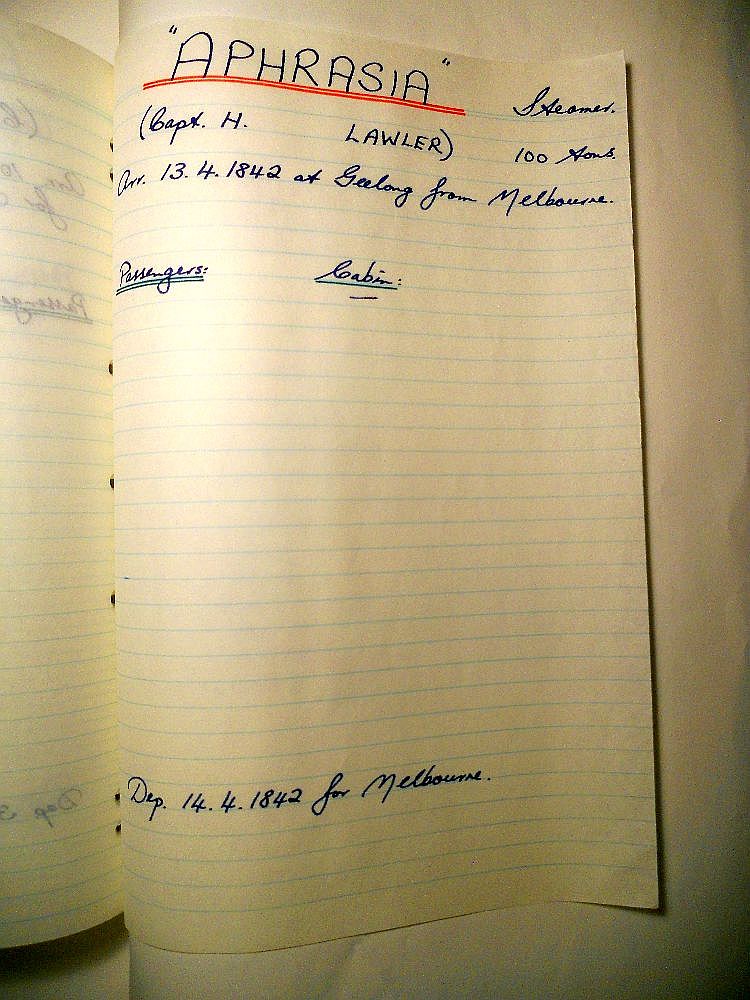 "APHRASIA" Steamer.
(Capt. H. LAWLER) 100 tons.
Arr. 13.4.1842 at Geelong from Melbourne.
Passengers: Cabin:
—
Dep. 14.4.1842 for Melbourne.